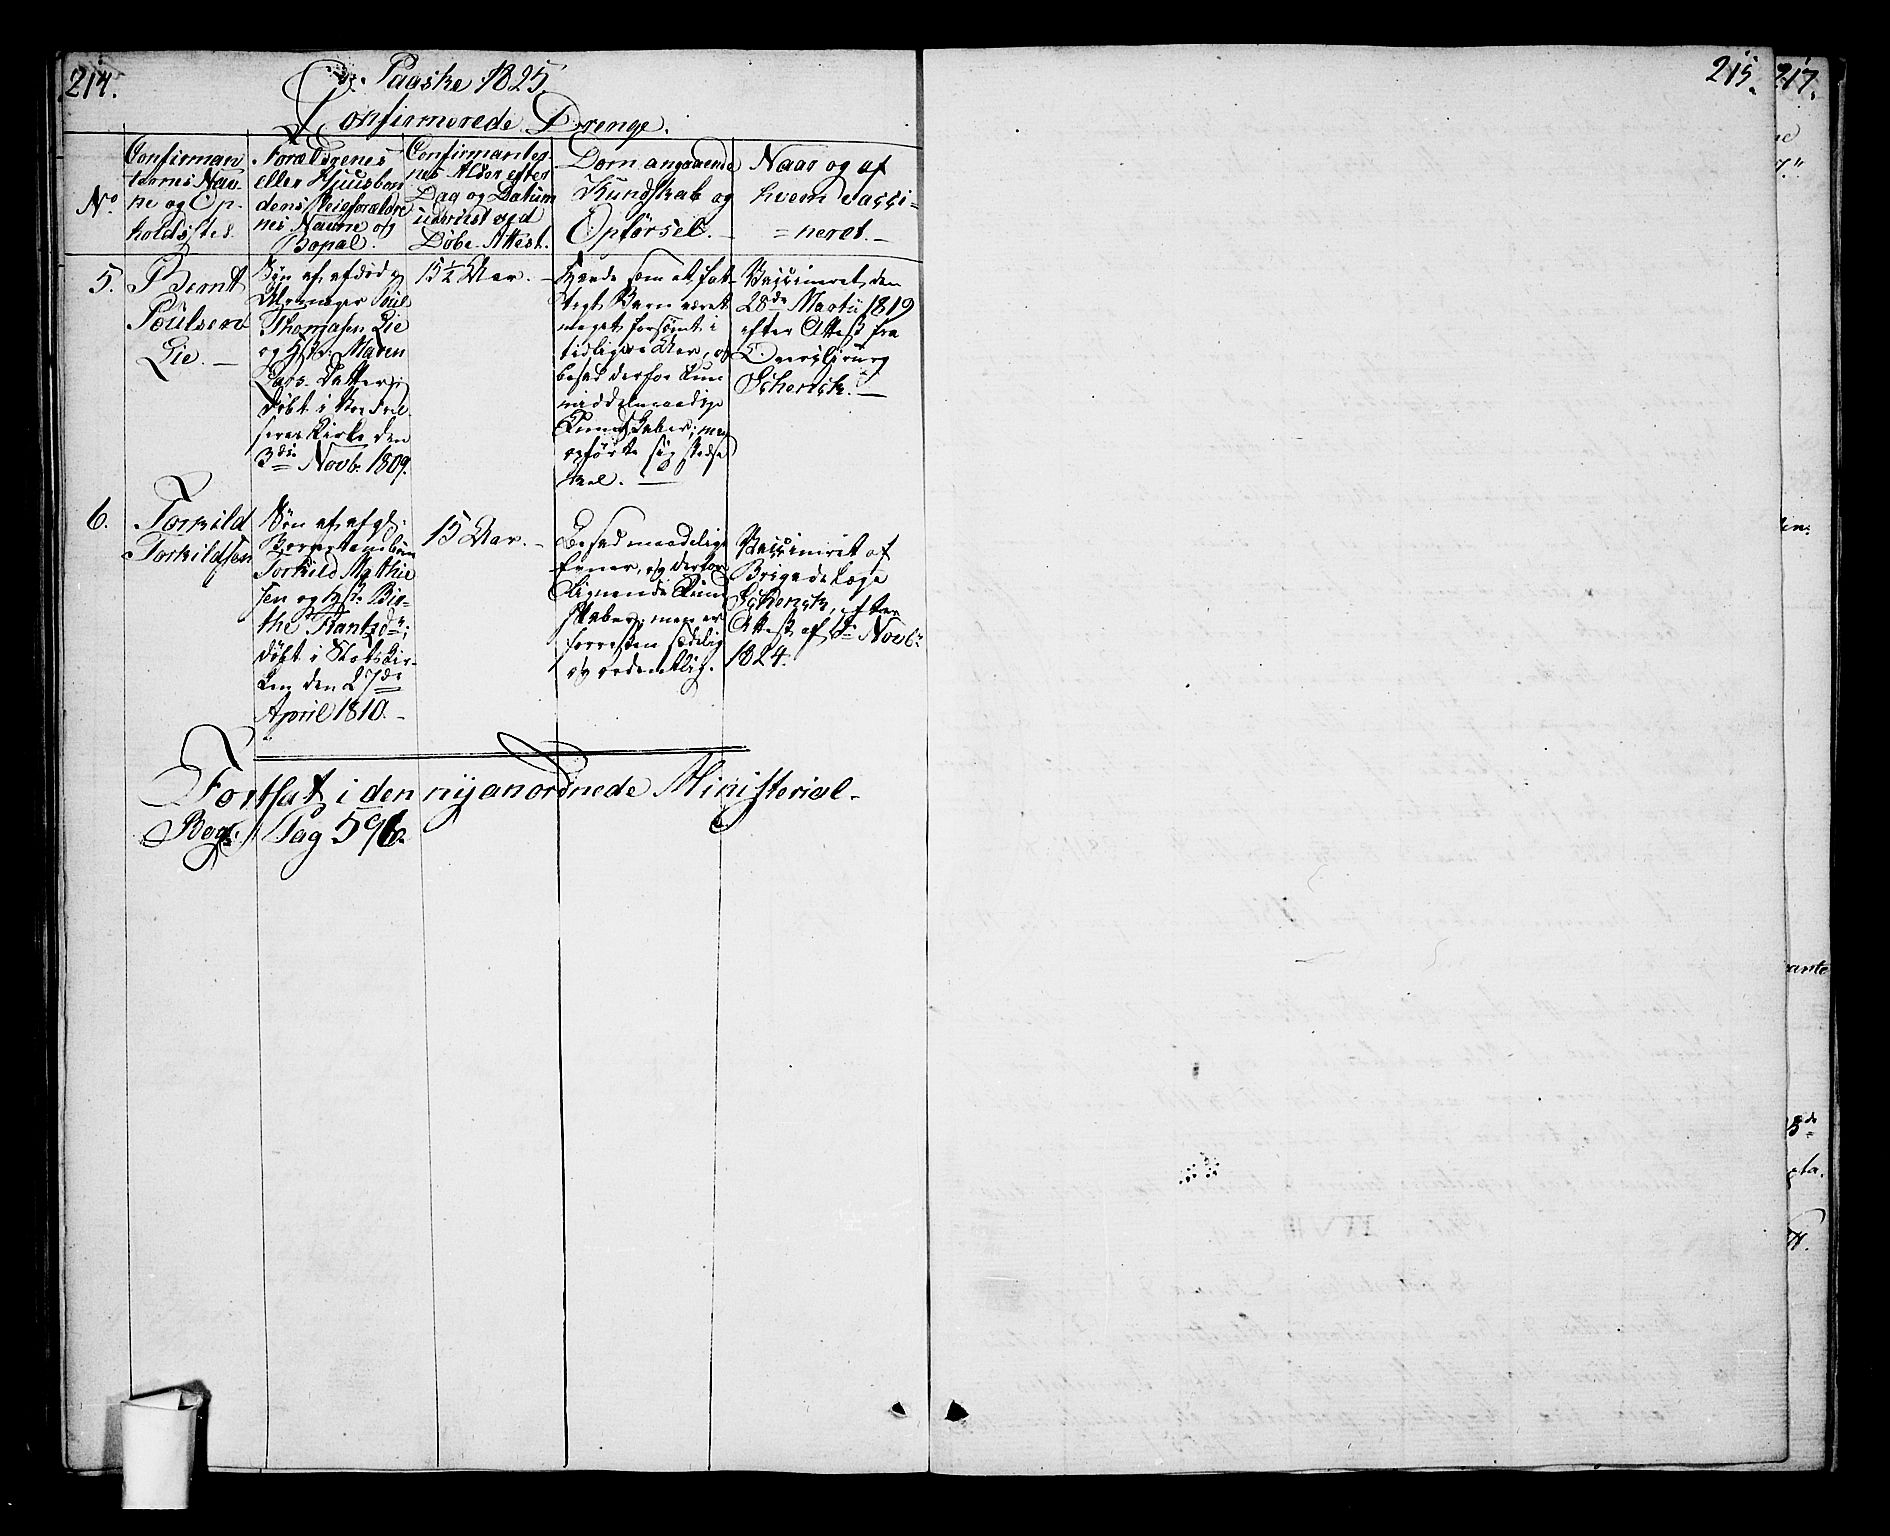 214.
Paaske 1825.
Confirmerede Drenge.
No.
Confirman
ternes Nav-
ne og Op-
holdsted.
Forældrenes
eller Huusbon
dens, Pleigforældre
nes Navne og
Bopæl.
Confirmanter-
nes Alder efter
Dag og Datum
udviist ved
Døbe-Attest.
Dom angaaende
Kundskab og
Opførsel.
Naar og af
hvem Vacci=
=neret.
5.
Bernt
Poulsen
Lie.
Søn af afdød
Poul
Thomasen Lie
og Hstr: Maren
Lars-Datter;
døbt i Vor Frel
seres Kirke den
3die Novb. 1809.
15½ Aar.
Havde som et fat-
tigt Barn været
meget forsømt i
tidligere Aar, og
besad derfor kun
middelmaadige
Kundskaber; men
opførte sig stedse
vel.
Vaccineret den
28de Martii 1819
efter Attest fra
Overchirurg
Schenck.
6.
Torkild
Torkildsen
Søn af afg:
Torkild Mathie
sen og Hstr: Bir-
the Frantzdr;
døbt i Slotskir-
ken den 27de
April 1810.
15 Aar.
Besad maadelige
Evner, og derfor
lignende Kund
skaber; men er
forresten sædelig
og ordentlig.
Vaccineret af
Brigade Læge
Schenck, efter
Attest af 1ste Novbr
1824.
Fortsat i den nyanordnede Ministerial-
Bog: Pag 596.
215.
217.